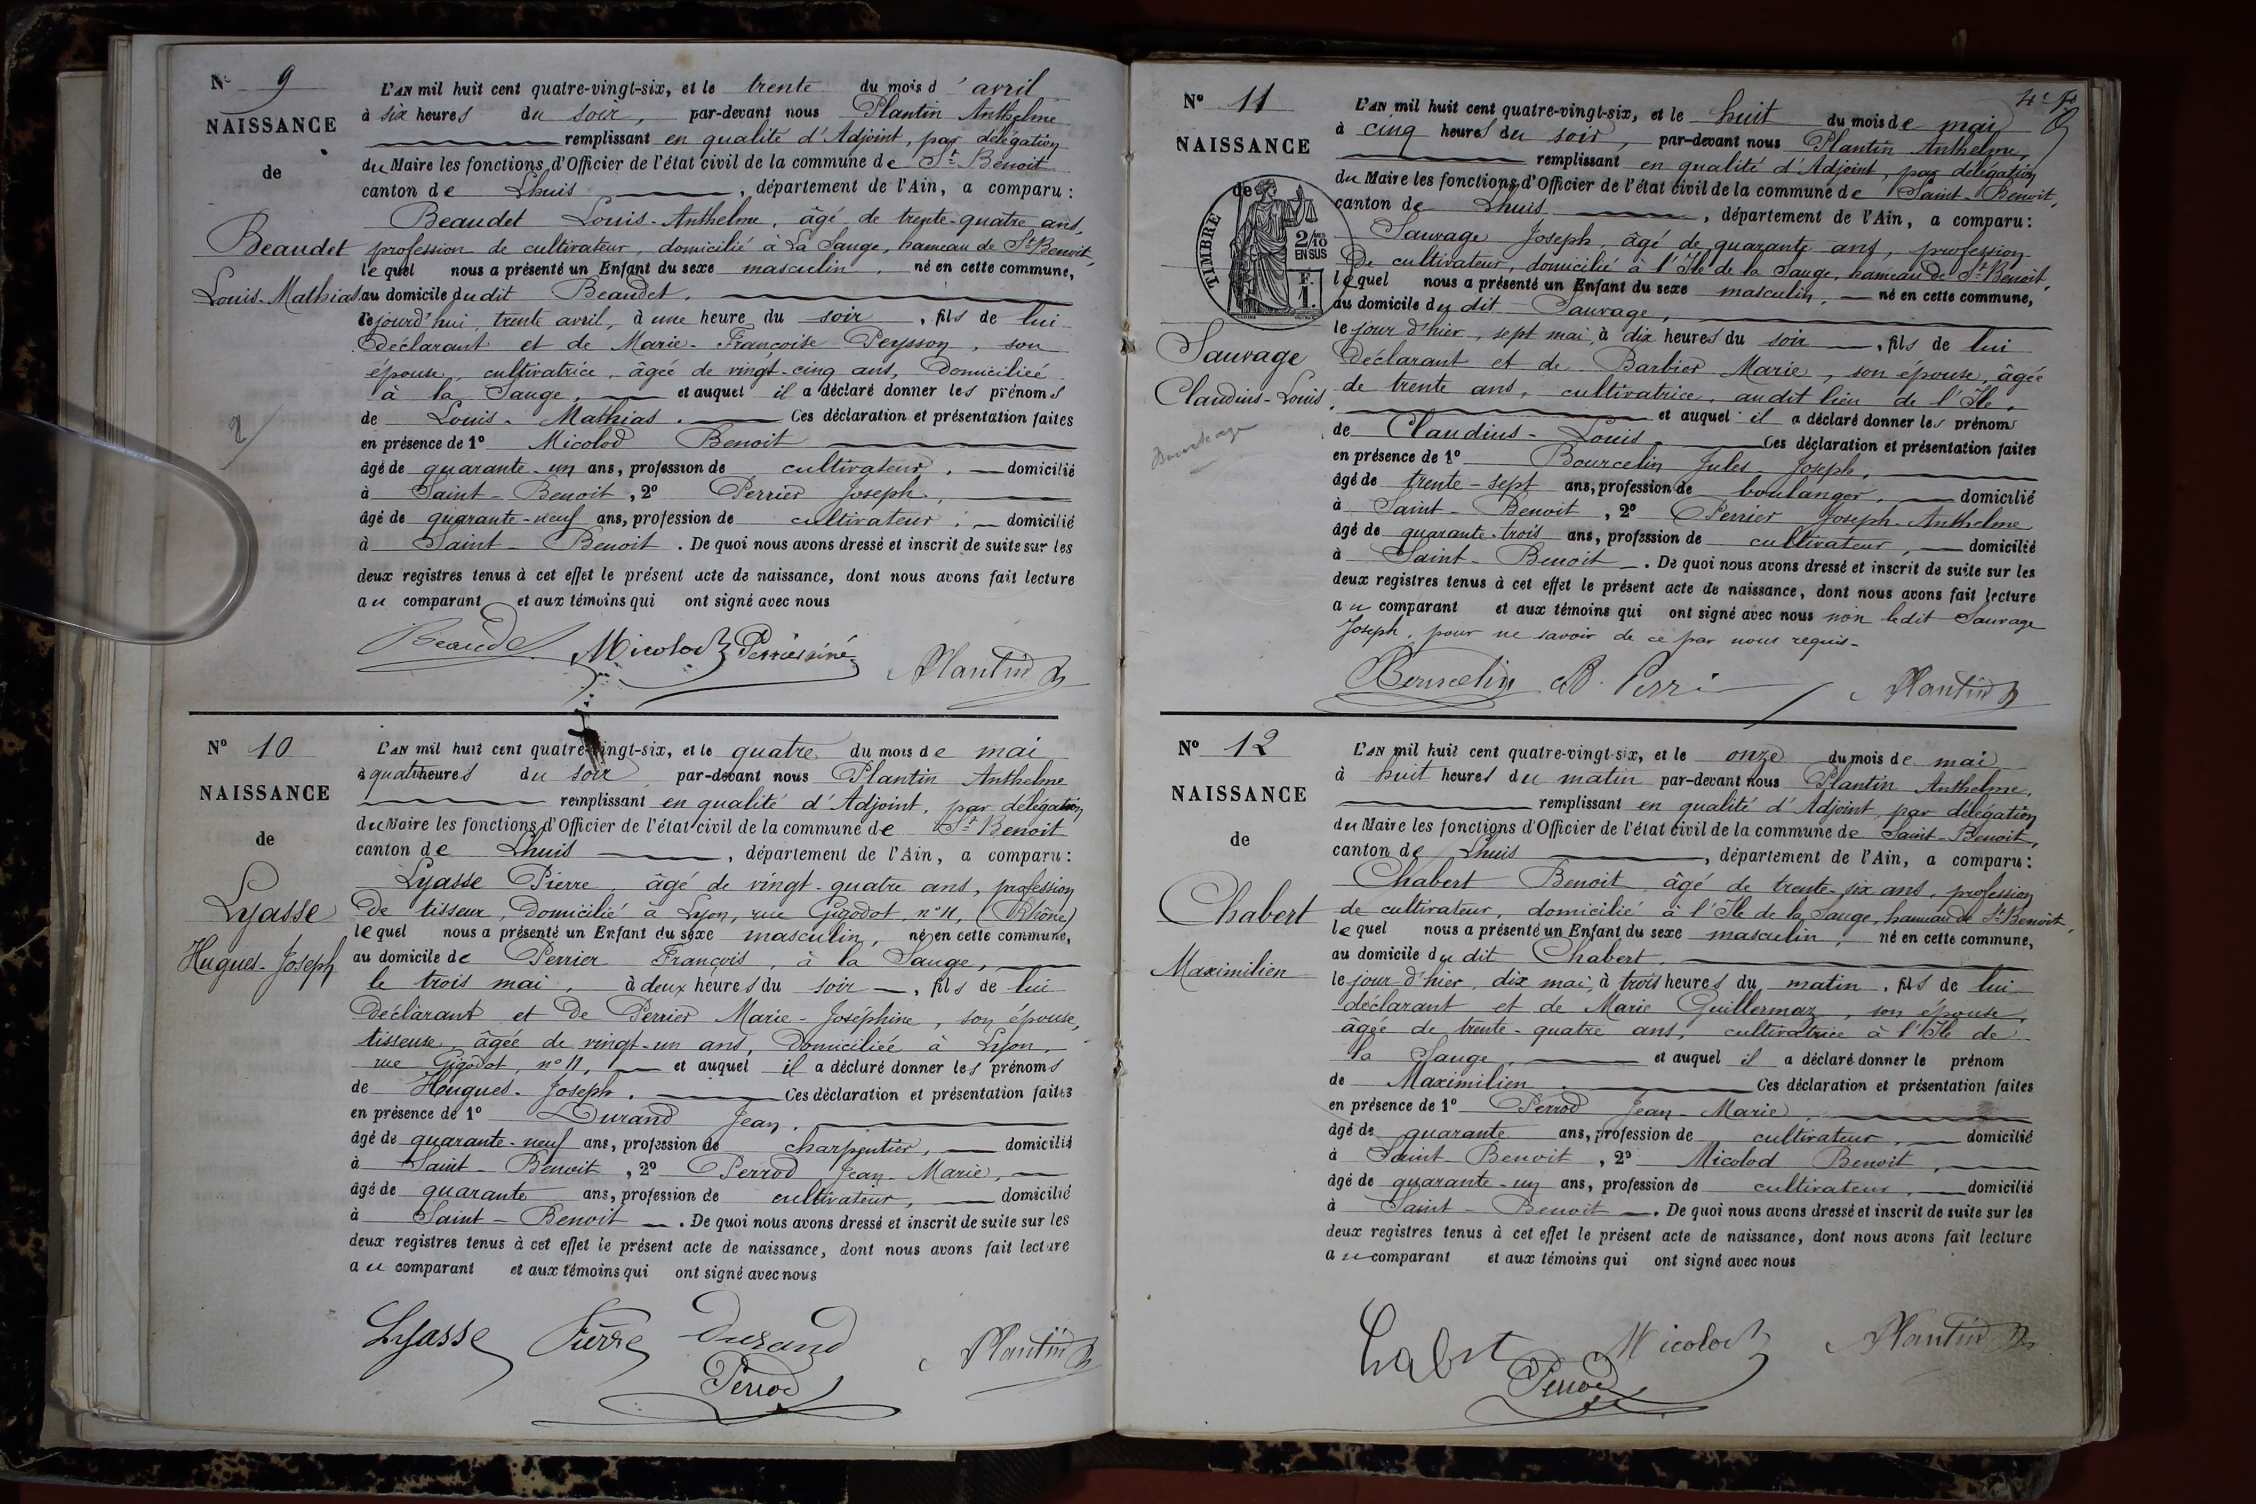 N° 9
NAISSANCE
de
Beaudet
Louis-Mathias
L'AN mil huit cent quatre-vingt-six, et le trente du mois d'avril
à six heures du soir, par-devant nous Plantin Anthelme
remplissant en qualité d'Adjoint, par délégation
du Maire les fonctions d'Officier de l'état civil de la commune de St Benoit
canton de Lhuis, département de l'Ain, a comparu :
Beaudet Louis-Anthelme, âgé de trente-quatre ans,
profession de cultivateur, domicilié à La Sauge, hameau de St Benoit,
lequel nous a présenté un Enfant du sexe masculin, né en cette commune,
au domicile dudit Beaudet.
cejourd'hui, trente avril, à une heure du soir, fils de lui
déclarant et de Marie-Françoise Peysson, son
épouse, cultivatrice, âgée de vingt-cinq ans, domiciliée
à la Sauge, et auquel il a déclaré donner les prénoms
de Louis-Mathias. Ces déclaration et présentation faites
en présence de 1° Micolod Benoit
âgé de quarante-un ans, profession de cultivateur, domicilié
à Saint-Benoit, 2° Perrier Joseph,
âgé de quarante-neuf ans, profession de cultivateur, domicilié
à Saint-Benoit. De quoi nous avons dressé et inscrit de suite sur les
deux registres tenus à cet effet le présent acte de naissance, dont nous avons fait lecture
au comparant et aux témoins qui ont signé avec nous
Beaudet Micolod Perrier ainé Plantin
N° 10
NAISSANCE
de
Lyasse
Hugues-Joseph
L'AN mil huit cent quatre-vingt-six, et le quatre du mois de mai
à quatre heures du soir par-devant nous Plantin Anthelme
remplissant en qualité d'Adjoint, par délégation
du Maire les fonctions d'Officier de l'état civil de la commune de St Benoit
canton de Lhuis, département de l'Ain, a comparu :
Lyasse Pierre, âgé de vingt-quatre ans, profession
de tisseur, domicilié à Lyon, rue Gigodot, n° 11, (Rhône)
lequel nous a présenté un Enfant du sexe masculin, né en cette commune,
au domicile de Perrier François, à la Sauge,
le trois mai, à deux heures du soir, fils de lui
déclarant et de Perrier Marie-Joséphine, son épouse,
tisseuse, âgée de vingt-un ans, domiciliée à Lyon,
rue Gigodot, n° 11, et auquel il a déclaré donner les prénoms
de Hugues-Joseph. Ces déclaration et présentation faites
en présence de 1° Durand Jean.
âgé de quarante-neuf ans, profession de charpentier, domicilié
à Saint-Benoit, 2° Perrod Jean-Marie,
âgé de quarante ans, profession de cultivateur, domicilié
à Saint-Benoit. De quoi nous avons dressé et inscrit de suite sur les
deux registres tenus à cet effet le présent acte de naissance, dont nous avons fait lecture
au comparant et aux témoins qui ont signé avec nous
Lyasse Pierre Durand Plantin
Perrod
4e
N° 11
NAISSANCE
de
TIMBRE
2/10
EN SUS
F.
1.
Sauvage
Claudius-Louis.
L'AN mil huit cent quatre-vingt-six, et le huit du mois de mai
à cinq heures du soir, par-devant nous Plantin Anthelme,
remplissant en qualité d'Adjoint, par délégation
du Maire les fonctions d'Officier de l'état civil de la commune de Saint-Benoit,
canton de Lhuis, département de l'Ain, a comparu :
Sauvage Joseph, âgé de quarante ans, profession
de cultivateur, domicilié à l'Ile de la Sauge, hameau de St Benoit,
lequel nous a présenté un Enfant du sexe masculin, né en cette commune,
au domicile du dit Sauvage,
le jour d'hier, sept mai, à dix heures du soir, fils de lui
déclarant et de Barbier Marie, son épouse, âgée
de trente ans, cultivatrice, audit lieu de l'Ile,
et auquel il a déclaré donner les prénoms
de Claudius-Louis. Ces déclaration et présentation faites
en présence de 1° Bourcelin Jules-Joseph,
âgé de trente-sept ans, profession de boulanger, domicilié
à Saint-Benoit, 2° Perrier Joseph-Anthelme
âgé de quarante-trois ans, profession de cultivateur, domicilié
à Saint-Benoit. De quoi nous avons dressé et inscrit de suite sur les
deux registres tenus à cet effet le présent acte de naissance, dont nous avons fait lecture
au comparant et aux témoins qui ont signé avec nous non ledit Sauvage
Joseph, pour ne savoir de ce par nous requis.
Bourcelin Perri Plantin
N° 12
NAISSANCE
de
Chabert
Maximilien
L'AN mil huit cent quatre-vingt-six, et le onze du mois de mai
à huit heures du matin par-devant nous Plantin Anthelme,
remplissant en qualité d'Adjoint, par délégation
du Maire les fonctions d'Officier de l'état civil de la commune de Saint-Benoit,
canton de Lhuis, département de l'Ain, a comparu :
Chabert Benoit, âgé de trente-six ans, profession
de cultivateur, domicilié à l'Ile de la Sauge, hameau de St Benoit,
lequel nous a présenté un Enfant du sexe masculin, né en cette commune,
au domicile du dit Chabert.
le jour d'hier, dix mai, à trois heures du matin, fils de lui
déclarant et de Marie Guillermaz, son épouse,
âgée de trente-quatre ans, cultivatrice à l'Ile de
la Sauge, et auquel il a déclaré donner le prénom
de Maximilien. Ces déclaration et présentation faites
en présence de 1° Perrod Jean-Marie,
âgé de quarante ans, profession de cultivateur, domicilié
à Saint-Benoit, 2° Micolod Benoit,
âgé de quarante-un ans, profession de cultivateur, domicilié
à Saint-Benoit. De quoi nous avons dressé et inscrit de suite sur les
deux registres tenus à cet effet le présent acte de naissance, dont nous avons fait lecture
au comparant et aux témoins qui ont signé avec nous
Chabert Micolod Plantin
Perrod